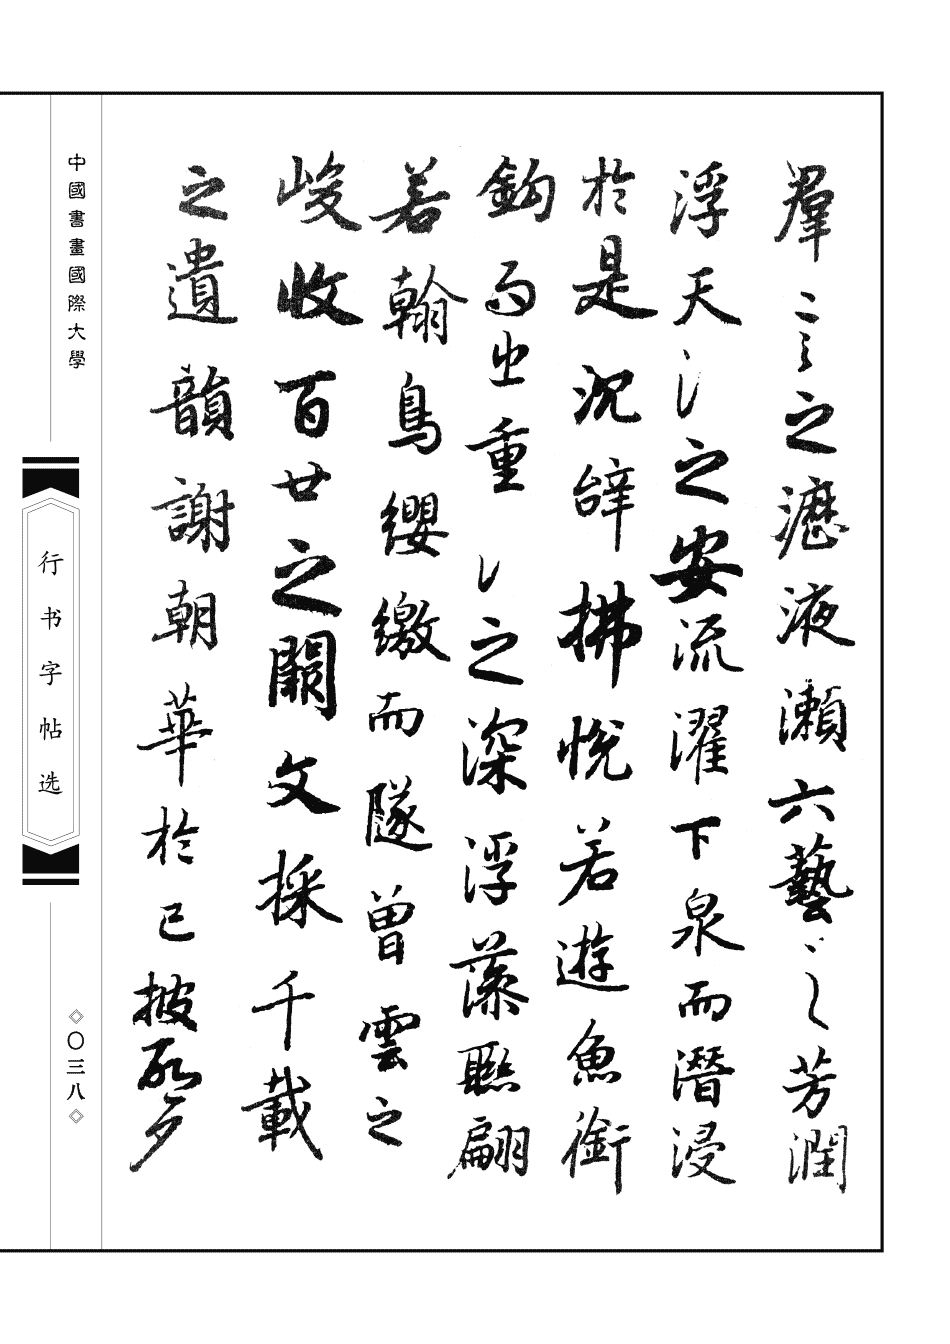 羣言之瀝液漱六藝之芳潤
浮天之安流濯下泉而潛浸
於是沉辭怫悅若遊魚銜
鉤而出重之深浮藻聯翩
若翰鳥纓繳而墜曾雲之
峻收百世之闕文採千載
之遺韻謝朝華於已披啓夕
中國書畫國際大學
行书字帖选
〇三八